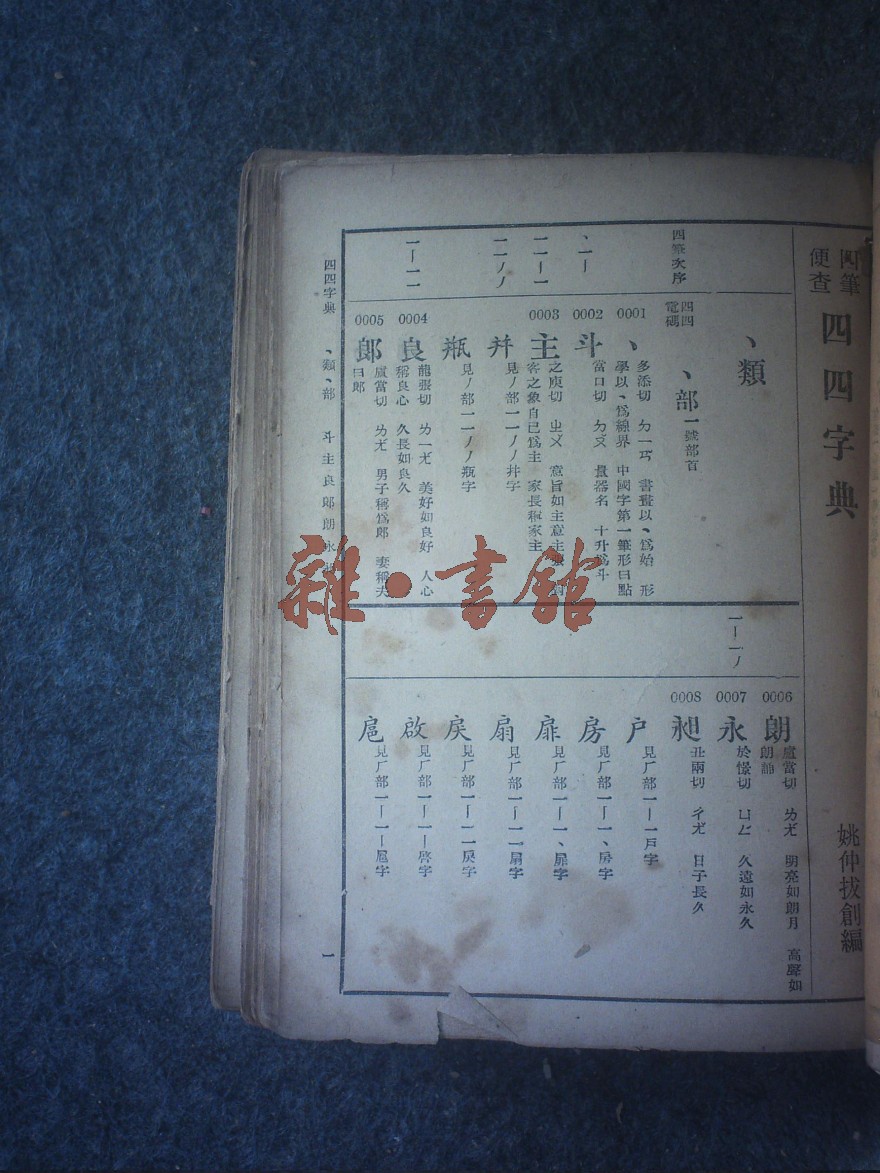 四筆
便查
四四字典
姚仲拔創編
四筆次序
、類
四四
電碼
、部一號部首
0001
、
多添切　ㄉㄧㄢ　書畫以、爲始　形
學以、爲線界　中國字第一筆形曰點
、一丨
0002
斗
當口切　ㄉㄡ　量器名　十升爲斗
一一丨一
0003
主
之庾切　ㄓㄨ　意旨如主意主張
客之象自已爲主　家長稱家主
一一ノノ
幷
見ノ部一一ノノ幷字
瓶
見ノ部一一ノノ瓶字
一丨一一
0004
良
龍張切　ㄌㄧㄤ　美好如良好　人心
稱良心　久長如良久
0005
郞
盧當切　ㄌㄤ　男子稱爲郎　妻稱夫
曰郎
一丨一ノ
0006
朗
盧當切　ㄌㄤ　明亮如朗月　高聲如
朗誦
0007
永
於憬切　ㄩㄥ　久遠如永久
0008
昶
丑兩切　ㄔㄤ　日子長久
户
見厂部一丨一戶字
房
見厂部一丨一、房字
扉
見厂部一丨一、扉字
扇
見厂部一丨一一扇字
戾
見厂部一丨一一戾字
啟
見厂部一丨一丨啓字
扈
見厂部一丨一丨扈字
四四字典　、類、部　斗主良郎朗永
一
雜·書館